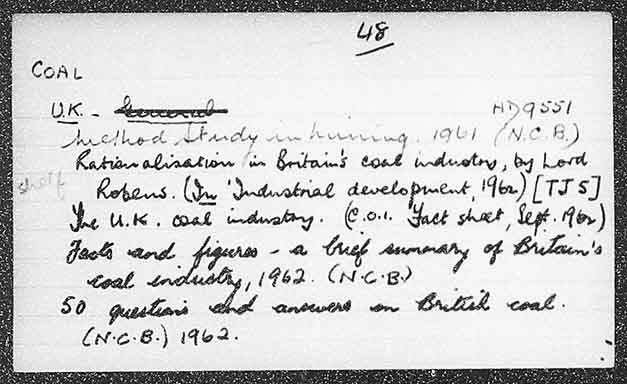 48
COAL
U.K. - General
HD9551
Method Study in mining. 1961 (N.C.B.)
Rationalisation in Britain's coal industry, by Lord
shelf
Robens. (In 'Industrial development, 1962) [TJS]
The U.K. coal industry. (C.O.I. Fact sheet, Sept. 1962)
Facts and figures - a brief summary of Britain's
coal industry, 1962. (N.C.B.)
50 questions and answers on British coal.
(N.C.B.) 1962.